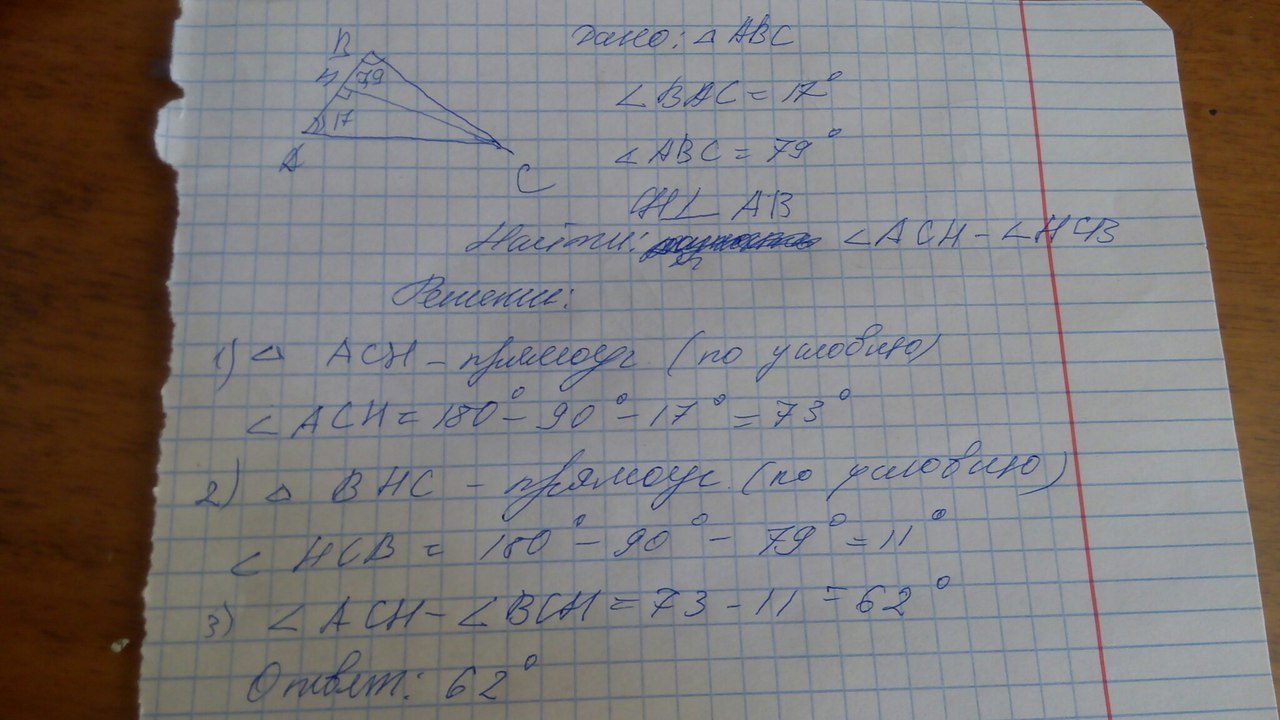 B
H
79
17
A
C
Дано: △ ABC
∠BAC = 17°
∠ABC = 79°
CH⊥ AB
Найти: ∠ACH - ∠HCB
Решение:
1) △ ACH - прямоуг. (по условию)
∠ACH = 180° - 90° - 17° = 73°
2) △ BHC - прямоуг. (по условию)
∠HCB = 180° - 90° - 79° = 11°
3) ∠ACH - ∠BCH = 73 - 11 = 62°
Ответ: 62°